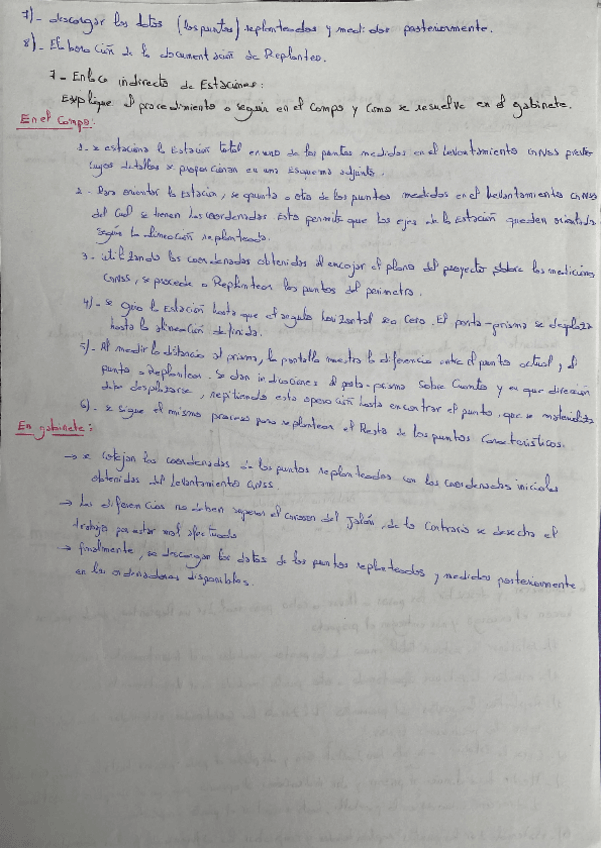 7)- descargar los datos (los puntos) replanteados y medidos posteriormente.
8)- Elaboración de la documentación de Replanteo.
7- Enlace indirecto de Estaciones:
Explique el procedimiento a seguir en el campo y como se resuelve en el gabinete.
En el Campo:
1- se estaciona la Estación total en uno de los puntos medidos en el levantamiento GNSS previo
cuyos detalles se proporcionan en una Esquema adjunto.
2- Para orientar la Estación, se apunta a otro de los puntos medidos en el levantamiento GNSS
del cual se tienen las coordenadas. Esto permite que los ejes de la Estación queden orientados
según la alineación replanteada.
3- utilizando las coordenadas obtenidas al encajar el plano del proyecto sobre las mediciones
GNSS, se procede a Replantear los puntos del perímetro.
4)- se gira la Estación hasta que el angulo horizontal sea Cero. El porta-prisma se desplaza
hasta la alineación definida.
5)- Al medir la distancia al prisma, la pantalla muestra la diferencia entre el punto actual y el
punto a Replantear. Se dan indicaciones al porta-prisma sobre cuanto y en que dirección
debe desplazarse, repitiendo esta operación hasta encontrar el punto, que se materializa
6)- se sigue el mismo proceso para replantear el Resto de los puntos Característicos.
En gabinete:
→ se cotejan las coordenadas de los puntos replanteados con las coordenadas iniciales
obtenidas del levantamiento GNSS.
→ Las diferencias no deben superar el grosor del Jalón, de lo contrario se desecha el
trabajo por estar mal efectuado
→ finalmente, se descargan los datos de los puntos replanteados y medidos posteriormente
en los ordenadores disponibles.